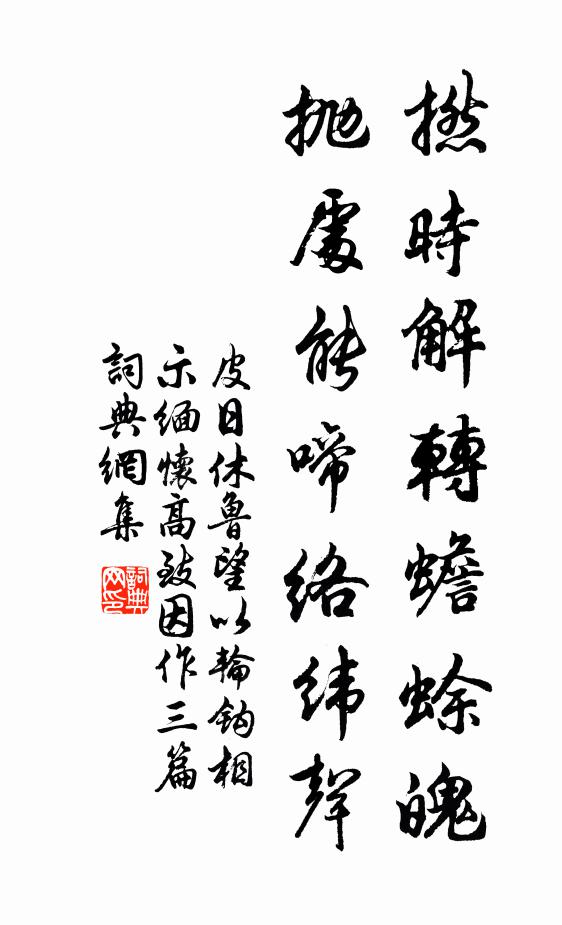 撚時解轉蟾蜍魄
拋處能啼絡緯聲
皮日休魯望以輪鉤相
示緬懷高致因作三篇
詞典網集
詞典
网印